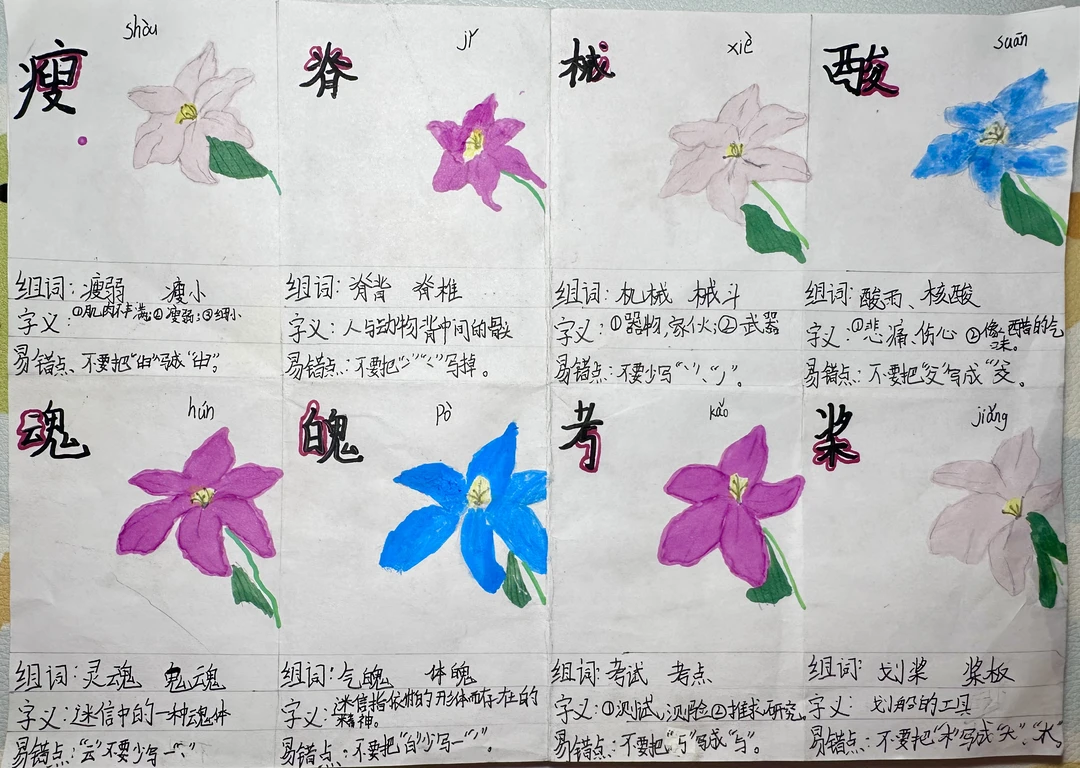 shòu
瘦
组词:瘦弱 瘦小
字义:①肌肉不丰满;②瘦弱;③细小
易错点、不要把"臼"写成"由"。
jǐ
脊
组词:脊背 脊椎
字义:人与动物背中间的骨骼
易错点:不要把"冫""く"写掉。
xiè
械
组词:机械 械斗
字义:①器物,家伙;②武器
易错点:不要少写"丶"、"丿"。
suān
酸
组词:酸雨、核酸
字义:①悲痛、伤心 ②像醋的气味。
易错点:不要把"夋"写成"夂"。
hún
魂
组词:灵魂 鬼魂
字义:迷信中的一种魂体
易错点:"云"不要少写一"丶"
pò
魄
组词:气魄 体魄
字义:迷信指依附的形体而存在的精神。
易错点:不要把"白"少写一"丿"。
kǎo
考
组词:考试 考点
字义:①测试,测验②推求研究。
易错点:不要把"丂"写成"与"。
jiǎng
桨
组词 划桨 桨板
字义:划船的工具
易错点:不要把"木"写成"大"、"水"